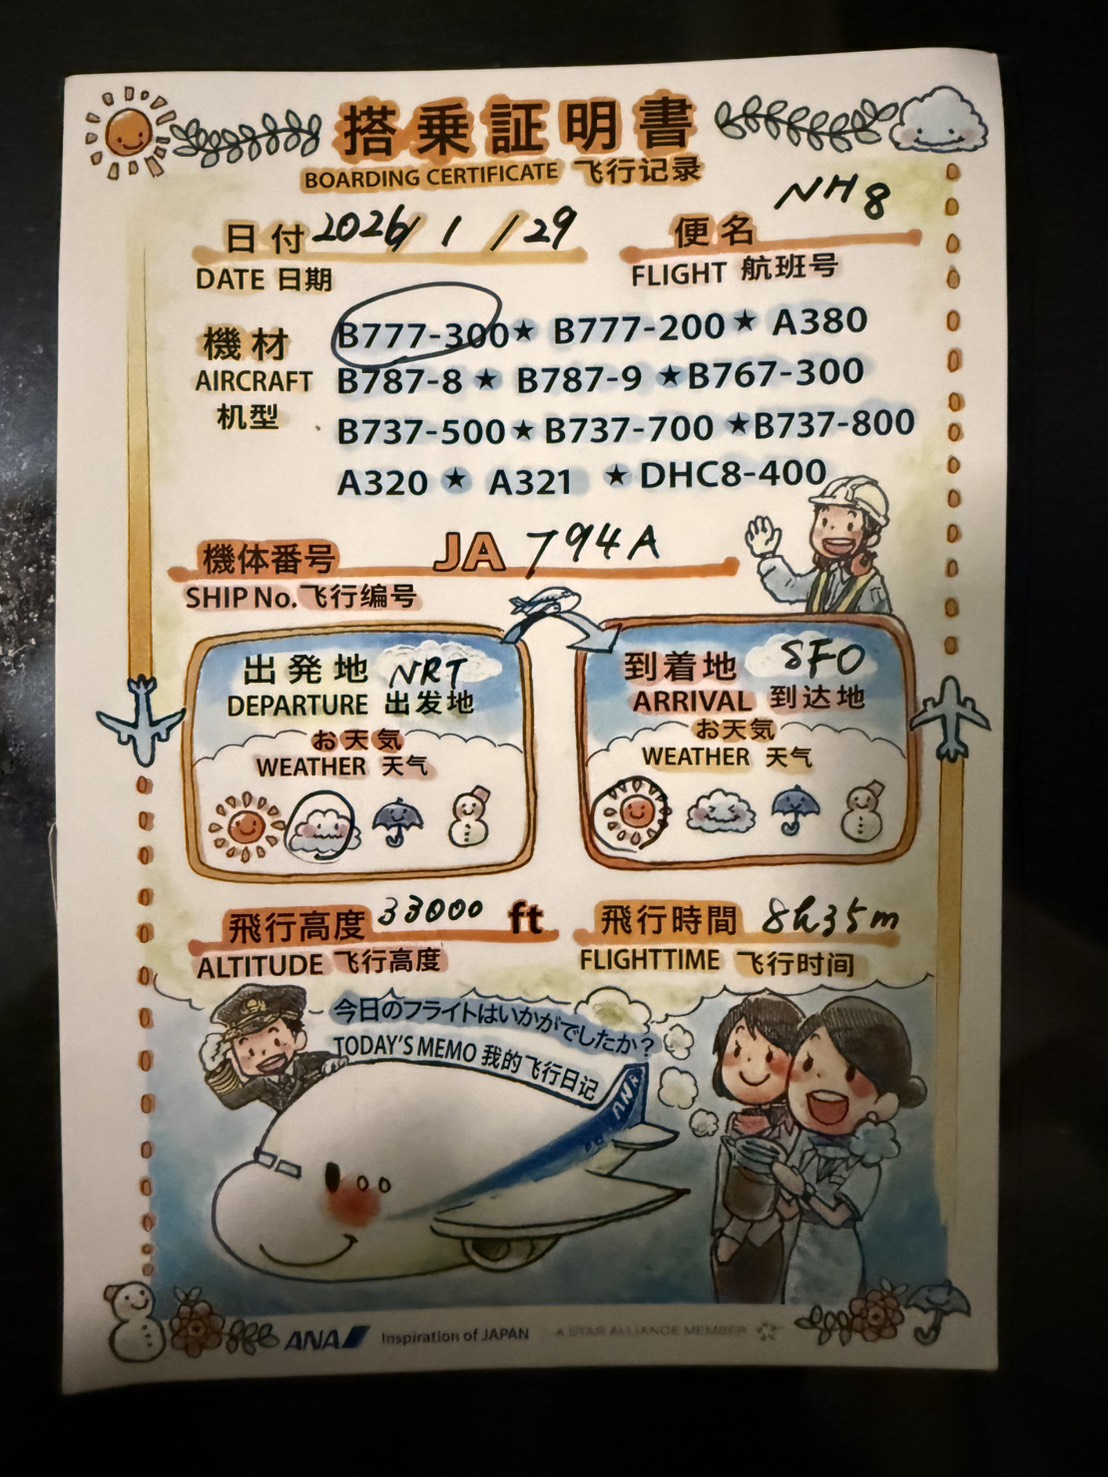 搭乗証明書
BOARDING CERTIFICATE 飞行记录
日付 2026/1/29
DATE 日期
便名 NH8
FLIGHT 航班号
機材
AIRCRAFT
机型
B777-300★ B777-200★ A380
B787-8 ★ B787-9 ★B767-300
B737-500★B737-700 ★B737-800
A320 ★ A321 ★DHC8-400
機体番号 JA 794A
SHIP No.飞行编号
出発地 NRT
DEPARTURE 出发地
お天気
WEATHER 天气
到着地 SFO
ARRIVAL 到达地
お天気
WEATHER 天气
飛行高度 33000 ft
ALTITUDE 飞行高度
飛行時間 8h35m
FLIGHTTIME 飞行时间
今日のフライトはいかがでしたか?
TODAY'S MEMO 我的飞行日记
ANA
ANA Inspiration of JAPAN A STAR ALLIANCE MEMBER